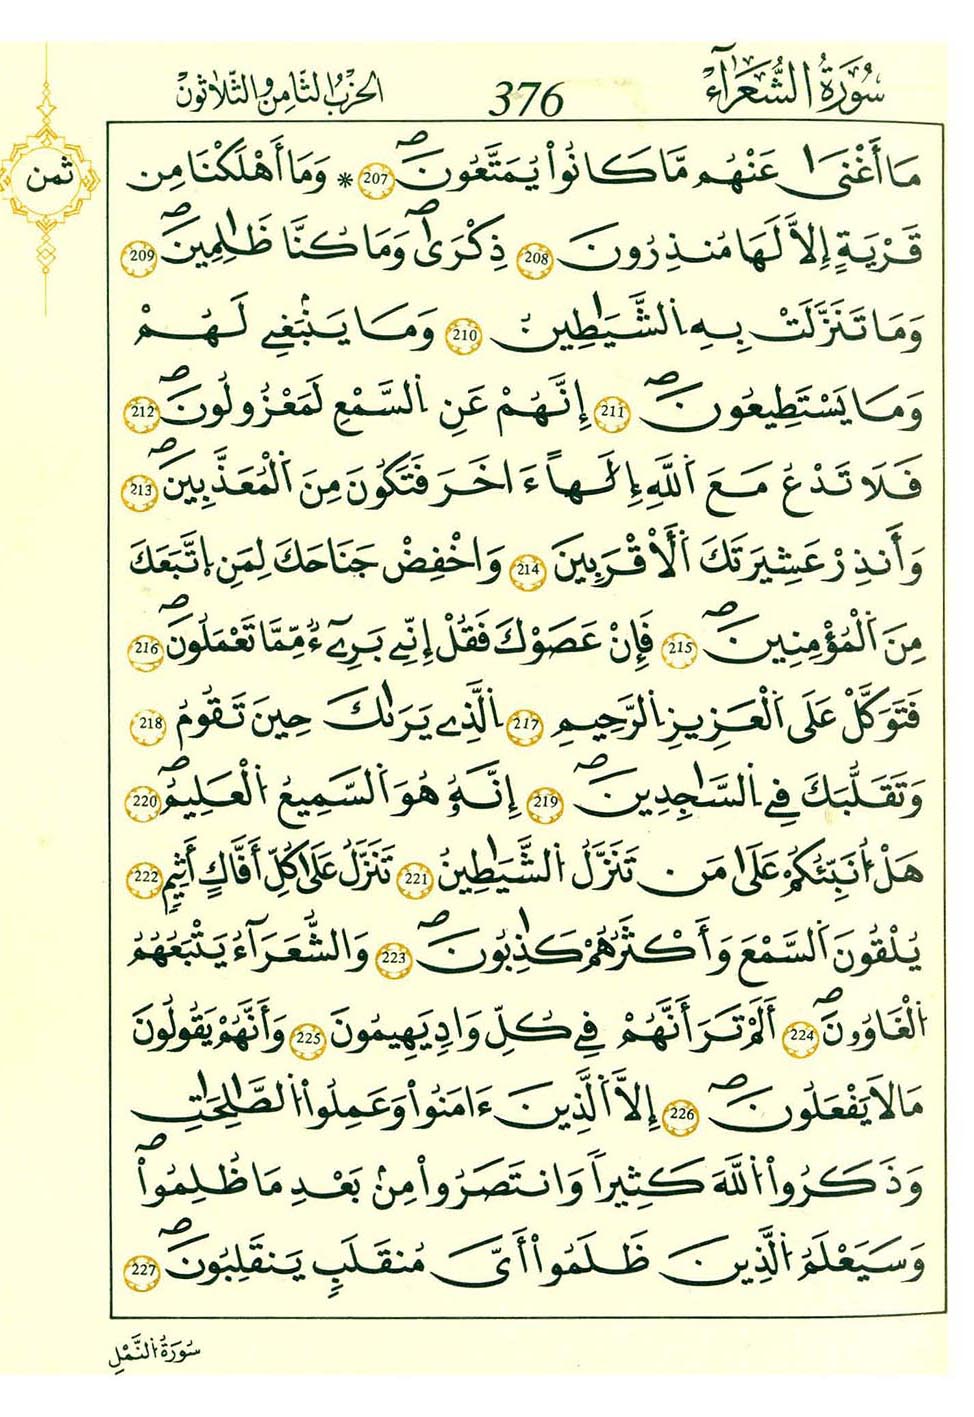 سُورَةُ الشُّعَرَآءِ
376
الحِزْبُ الثَّامِنُ وَالثَّلَاثُونَ
ثمن
مَا أَغْنَىٰ عَنْهُم مَّا كَانُواْ يُمَتَّعُونَۖ 207 * وَمَا أَهْلَكْنَا مِن
قَرْيَةٍ اِلاَّ لَهَا مُنذِرُونَ 208 ذِكْرَىٰۖ وَمَا كُنَّا ظَٰلِمِينَۖ 209
وَمَا تَنَزَّلَتْ بِهِ اِ۬لشَّيَٰطِينُ 210 وَمَا يَنۢبَغِے لَهُمْ
وَمَا يَسْتَطِيعُونَۖ 211 إِنَّهُمْ عَنِ اِ۬لسَّمْعِ لَمَعْزُولُونَۖ 212
فَلَا تَدْعُ مَعَ اَ۬للَّهِ إِلَٰهاً ءَاخَرَ فَتَكُونَ مِنَ اَ۬لْمُعَذَّبِينَۖ 213
وَأَنذِرْ عَشِيرَتَكَ اَ۬لَأقْرَبِينَ 214 وَاخْفِضْ جَنَاحَكَ لِمَنِ اِ۪تَّبَعَكَ
مِنَ اَ۬لْمُؤْمِنِينَۖ 215 فَإِنْ عَصَوْكَ فَقُلْ إِنِّے بَرِےٓءٞ مِّمَّا تَعْمَلُونَۖ 216
فَتَوَكَّلْ عَلَى اَ۬لْعَزِيزِ اِ۬لرَّحِيمِ 217 اِ۬لَّذِے يَرَىٰكَ حِينَ تَقُومُ 218
وَتَقَلُّبَكَ فِے اِ۬لسَّٰجِدِينَۖ 219 إِنَّهُۥ هُوَ اَ۬لسَّمِيعُ اُ۬لْعَلِيمُۖ 220
هَلْ أُنَبِّئُكُمْ عَلَىٰ مَن تَنَزَّلُ اُ۬لشَّيَٰطِينُ 221 تَنَزَّلُ عَلَىٰ كُلِّ أَفَّاكٍ أَثِيمٖ 222
يُلْقُونَ اَ۬لسَّمْعَ وَأَكْثَرُهُمْ كَٰذِبُونَۖ 223 وَالشُّعَرَآءُ يَتْبَعُهُمُ
اُ۬لْغَاوُۥنَۖ 224 أَلَمْ تَرَ أَنَّهُمْ فِے كُلِّ وَادٖ يَهِيمُونَ 225 وَأَنَّهُمْ يَقُولُونَ
مَا لَا يَفْعَلُونَۖ 226 إِلاَّ اَ۬لَّذِينَ ءَامَنُواْ وَعَمِلُواْ اُ۬لصَّٰلِحَٰتِ
وَذَكَرُواْ اُ۬للَّهَ كَثِيراٗ وَانتَصَرُواْ مِنۢ بَعْدِ مَا ظُلِمُواْۖ
وَسَيَعْلَمُ اُ۬لَّذِينَ ظَلَمُواْ أَىَّ مُنقَلَبٖ يَنقَلِبُونَۖ 227
سُورَةُ النَّمْلِ